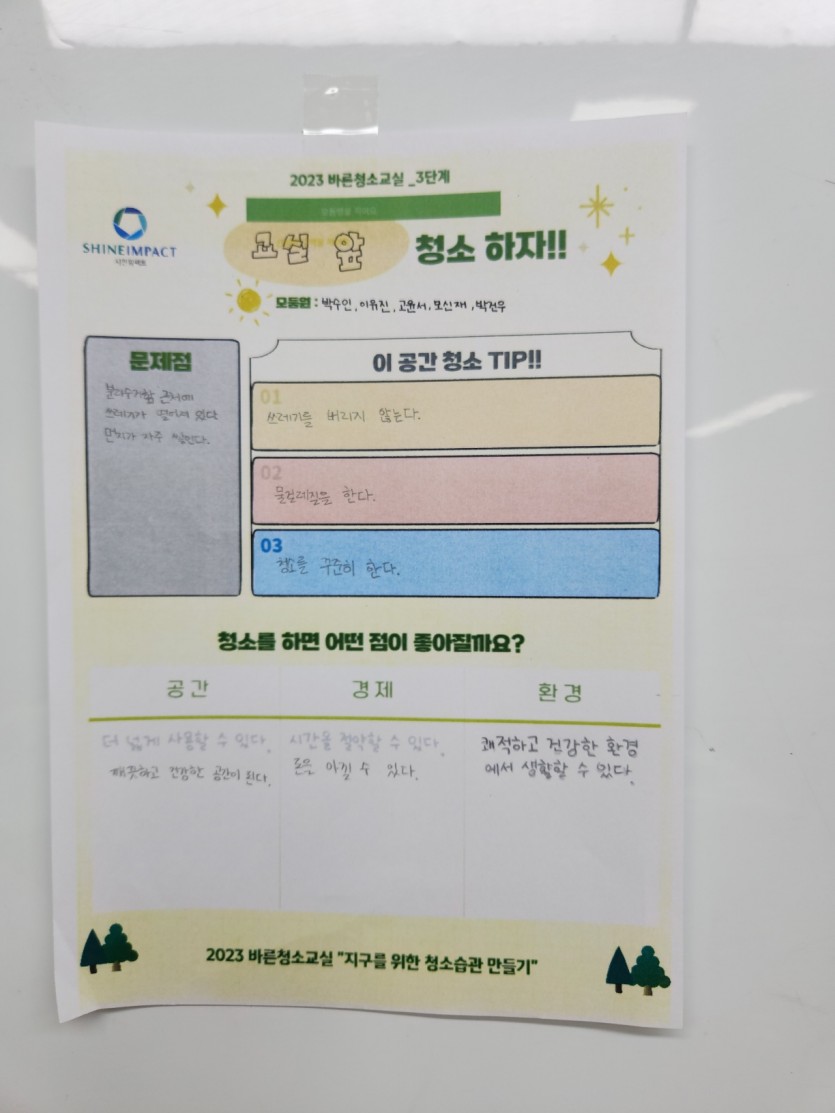 2023 바른청소교실 _3단계
SHINEIMPACT
교실 앞 청소 하자!!
모둠원 : 박수인, 이유진, 고윤서, 모신재, 박건우
문제점
분리수거함 근처에
쓰레기가 떨어져 있다
먼지가 자주 쌓인다.
이 공간 청소 TIP!!
01
쓰레기를 버리지 않는다.
02
물걸레질을 한다.
03
청소를 꾸준히 한다.
청소를 하면 어떤 점이 좋아질까요?
공간
더 넓게 사용할 수 있다.
깨끗하고 건강한 공간이 된다.
경제
시간을 절약할 수 있다.
돈을 아낄 수 있다.
환경
쾌적하고 건강한 환경
에서 생활할 수 있다.
2023 바른청소교실 "지구를 위한 청소습관 만들기"